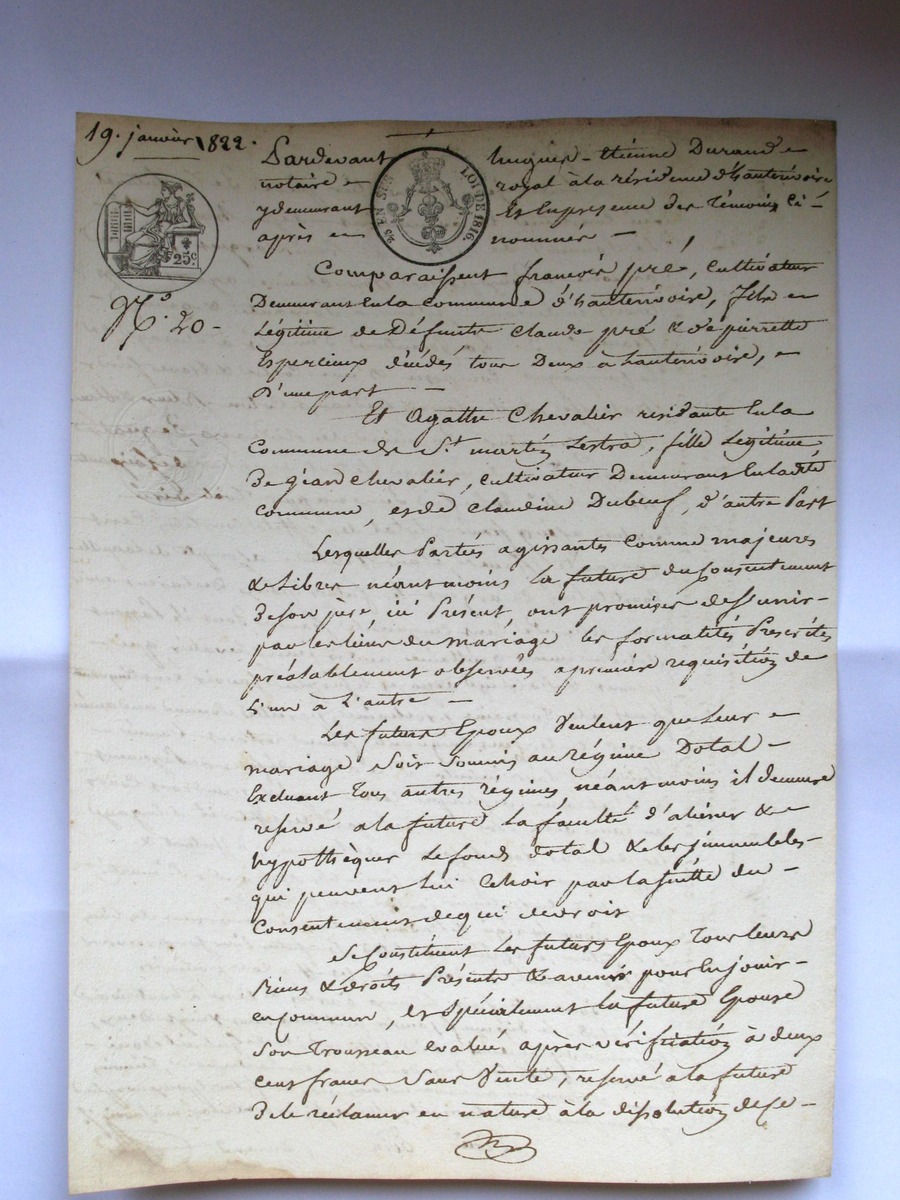 19. janvier 1822.
Pardevant hugues-étienne Durand
notaire royal à la résidence d'hauterivoire
y demeurant Et En presence des Témoins ci
après nommés
25 EN SUS
LOI DE 1816.
25c
N.o 20-
Comparaissent francois pré, cultivateur
Demeurant En la commune d'hauterivoire, fils
Légitime de Défunts Claude pré & de pierrette
Espercieux décédés tous Deux à hauterivoire,
D'une part
Et Agathe Chevalier residante En la
Commune de St. martin Lestra, fille Legitime
De jéan Chevalier, cultivateur Demeurant En ladte
commune, et de Claudine Dubeuf, d'autre Part
Lesquelles Parties agissantes comme majeures
& Libres néantmoins la future du Consentement
De son père ici Présent, ont promises de S'unir
par les liens du mariage les formalités Prescrites
préalablement observées a première requisition de
L'un à L'autre
Les futurs Epoux Veulent que Leur
mariage Soit Soumis au régime Dotal
Excluant Tous autres régimes néantmoins il demeure
reservé a la future La faculté d'aliéner &
hypothèquer Le fonds dotal & les jmmeubles
qui peuvent lui Echoir par la suitte du
Consentement de qui de droit
Se Constituent Les futurs Epoux Tous leurs
Biens & droits Présents & avenir pour En jouir
en Commun, et Spécialement la future Epouse
Son Trousseau évalué après vérification à deux
cent francs Sans Vente, reservé a la future
De le réclamer en nature à la dissolution de Ce